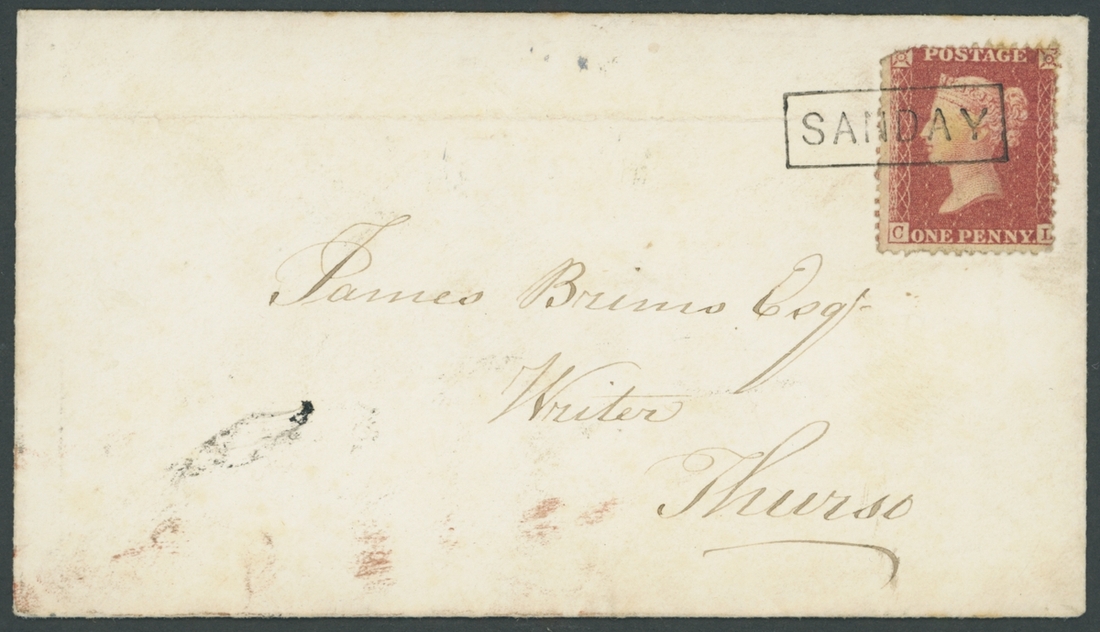 POSTAGE
SANDAY
C ONE PENNY. L
James Brims Esqr
Writer
Thurso